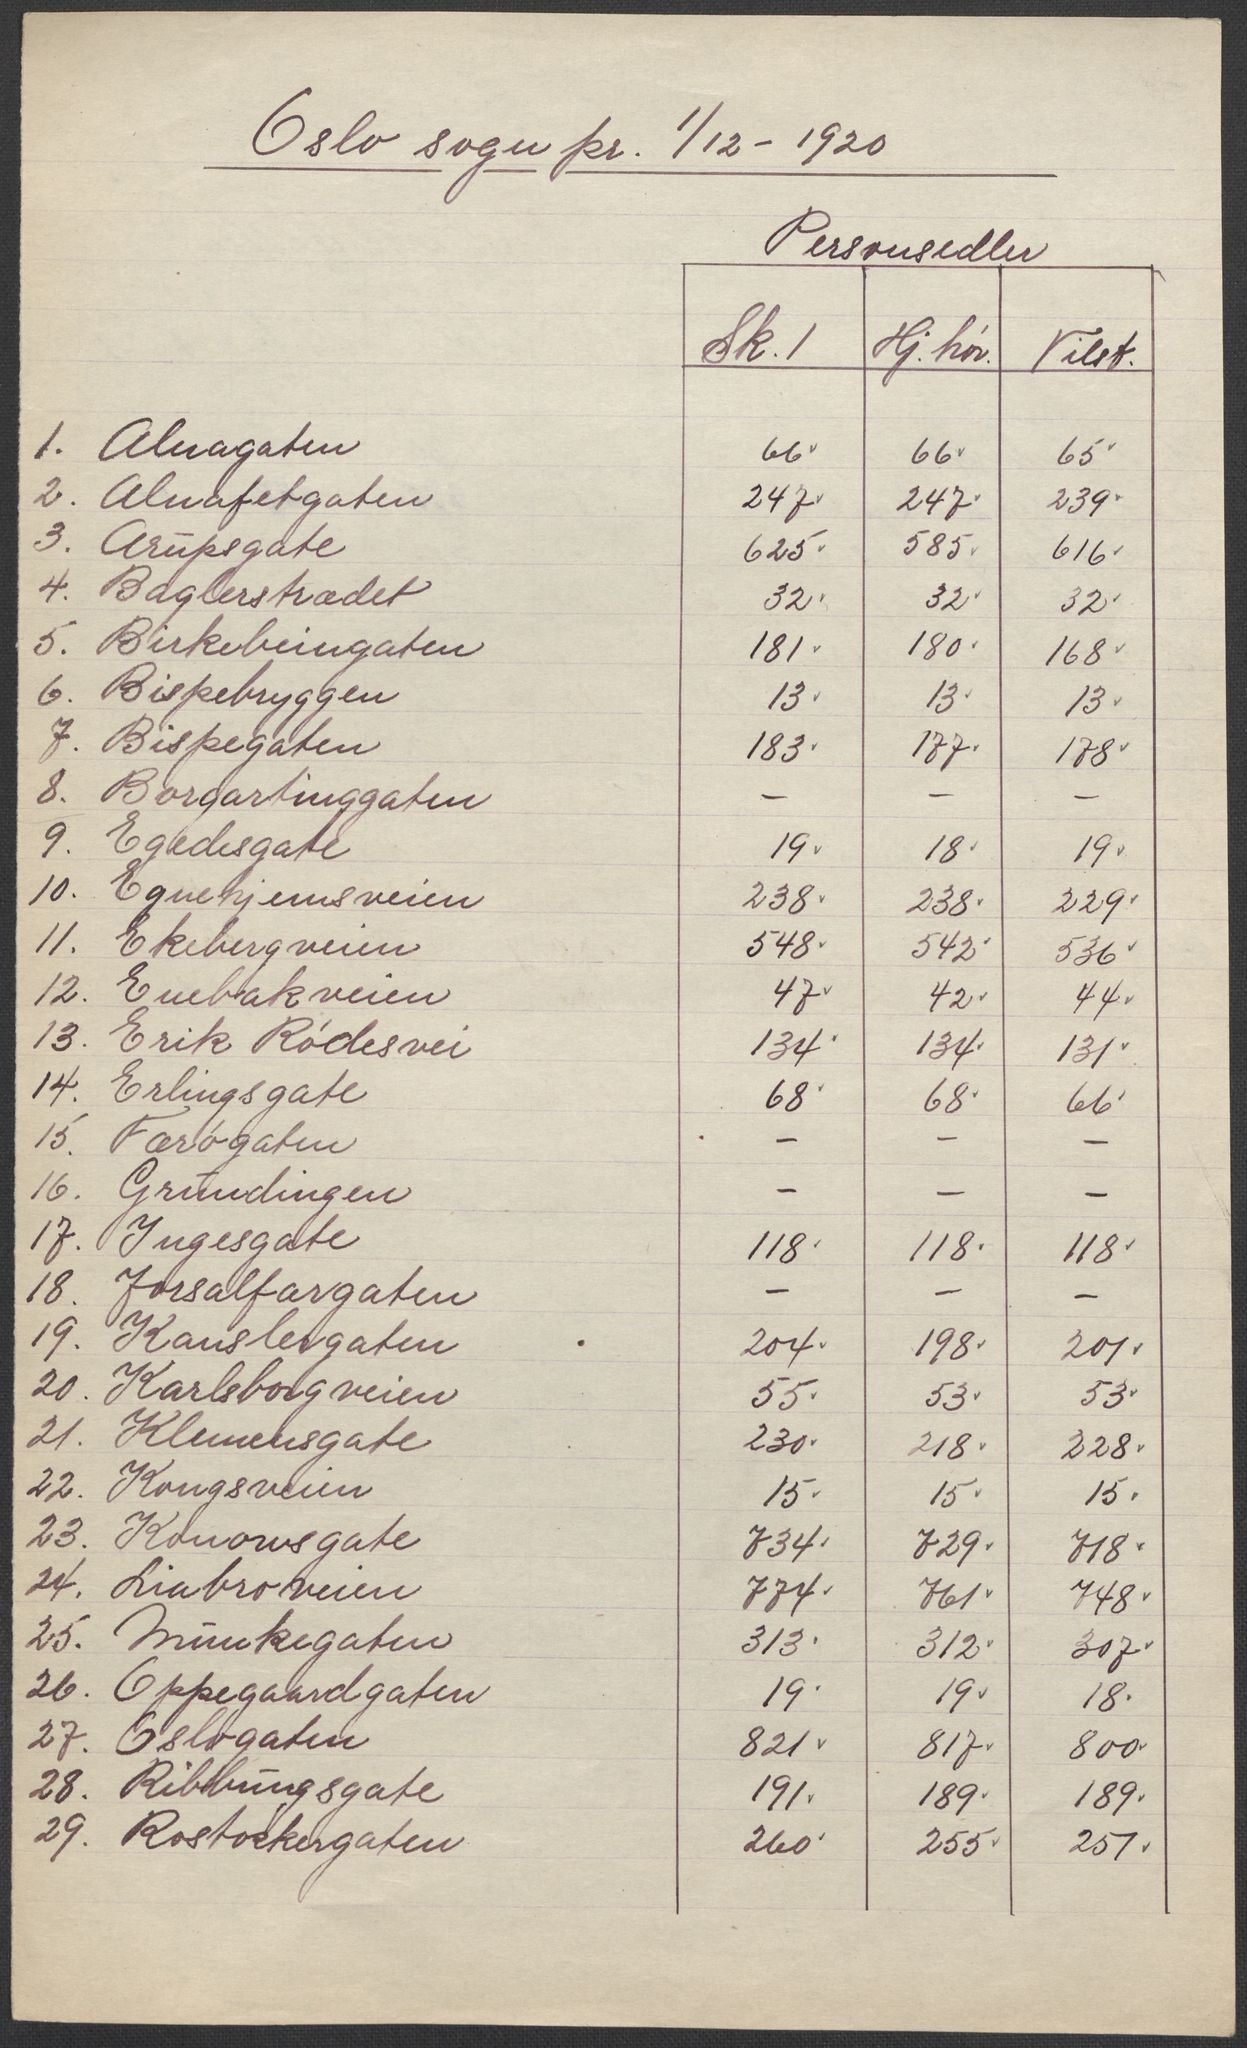 Oslo sogn pr. 1/12 - 1920
Personsedler
Sk. 1 Hj. hör. Tilst.
1. Alnagaten 66 66 65
2. Alnafetgaten 247 247 239
3. Arüpsgate 625 585 616
4. Baglerstrædet 32 32 32
5. Birkebeingaten 181 180 168
6. Bispebryggen 13 13 13
7. Bispegaten 183 177 178
8. Borgartinggaten — — —
9. Egedesgate 19 18 19
10. Egnehjemsveien 238 238 229
11. Ekebergveien 548 542 536
12. Enebakveien 47 42 44
13. Erik Rödesvei 134 134 131
14. Erlingsgate 68 68 66
15. Færögaten — — —
16. Gründingen — — —
17. Ingesgate 118 118 118
18. Jorsalfargaten — — —
19. Kanslergaten 204 198 201
20. Karlsborgveien 55 53 53
21. Klemensgate 230 218 228
22. Kongsveien 15 15 15
23. Konowsgate 734 729 718
24. Liabroveien 774 761 748
25. Münkegaten 313 312 307
26. Oppegaardgaten 19 19 18
27. Oslogaten 821 817 800
28. Ribbüngsgate 191 189 189
29. Rostockergaten 260 255 257